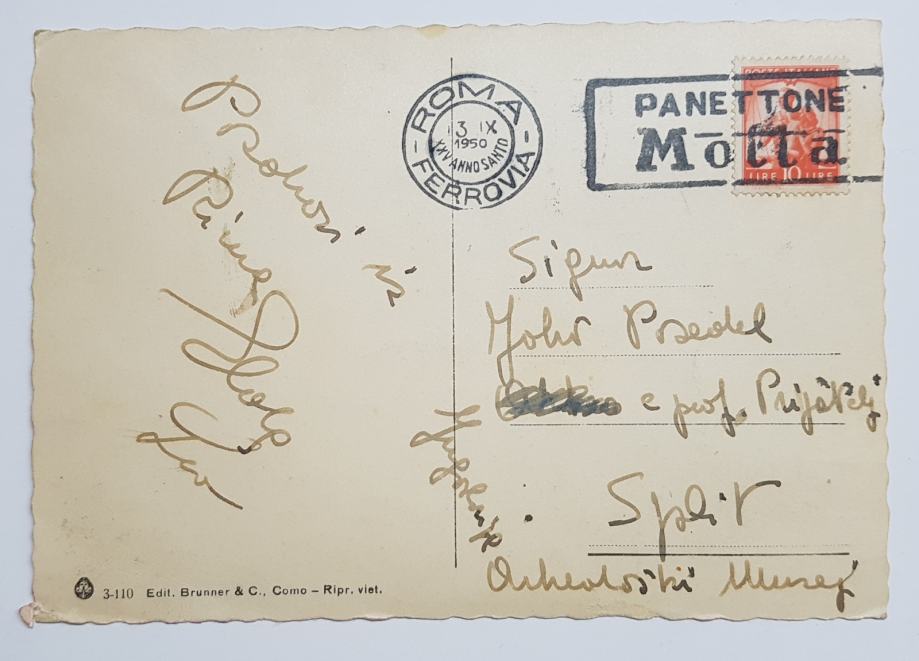 ROMA
FERROVIA
13 IX
1950
XXV ANNO SANTO
PANETTONE
Motta
POSTE ITALIANE
LIRE 10 LIRE
Pozdravi iz
Rima
Signor
Posedel
e prof. Prijatelj
Split
Arheološki Muzej
3-110 Edit. Brunner & C., Como – Ripr. viet.